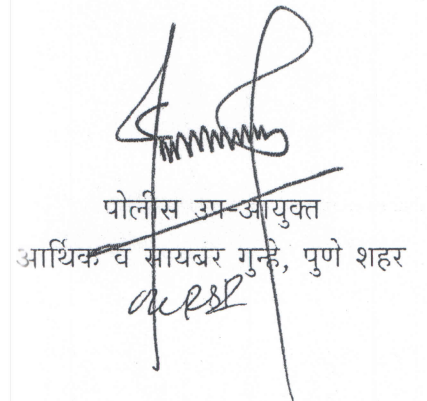 पोलीस उप-आयुक्त
आर्थिक व सायबर गुन्हे, पुणे शहर